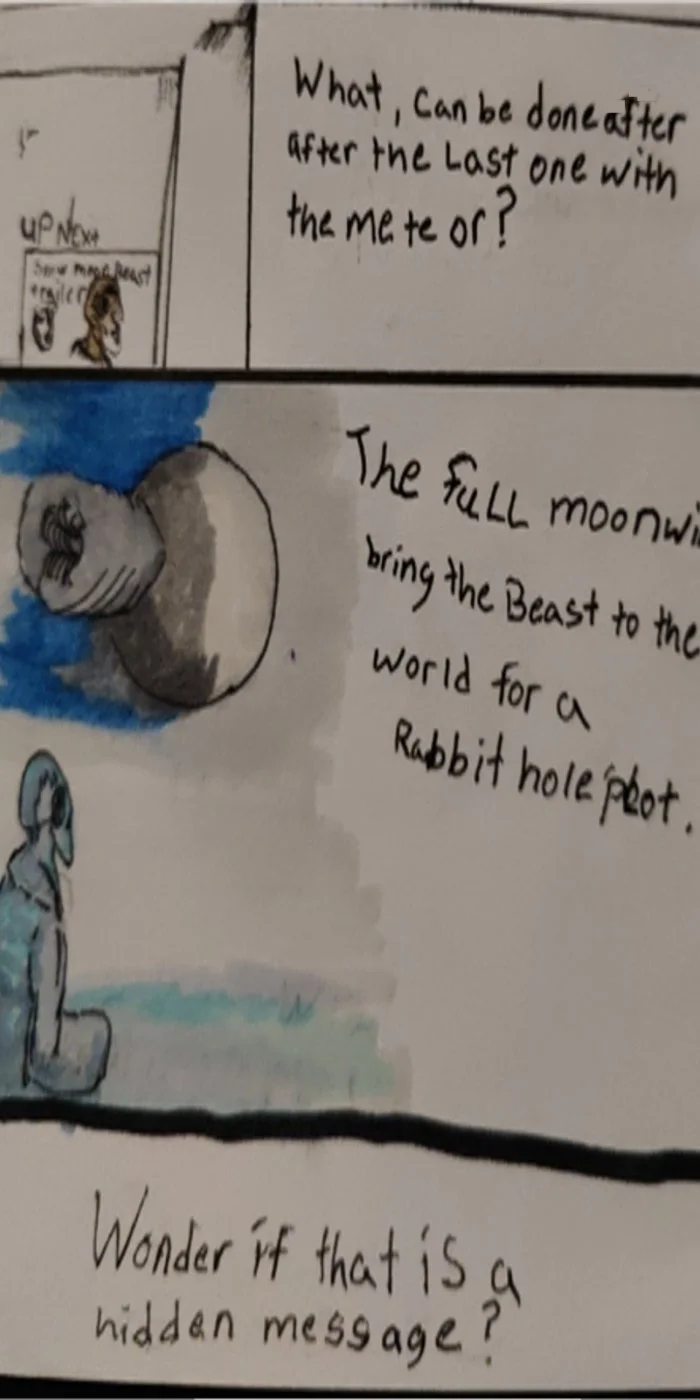 What, can be done after
after the Last one with
the me te or?
UP Next
trailer
The full moon
bring the Beast to the
world for a
Rabbit hole plot.
Wonder if that is a
hidden message?